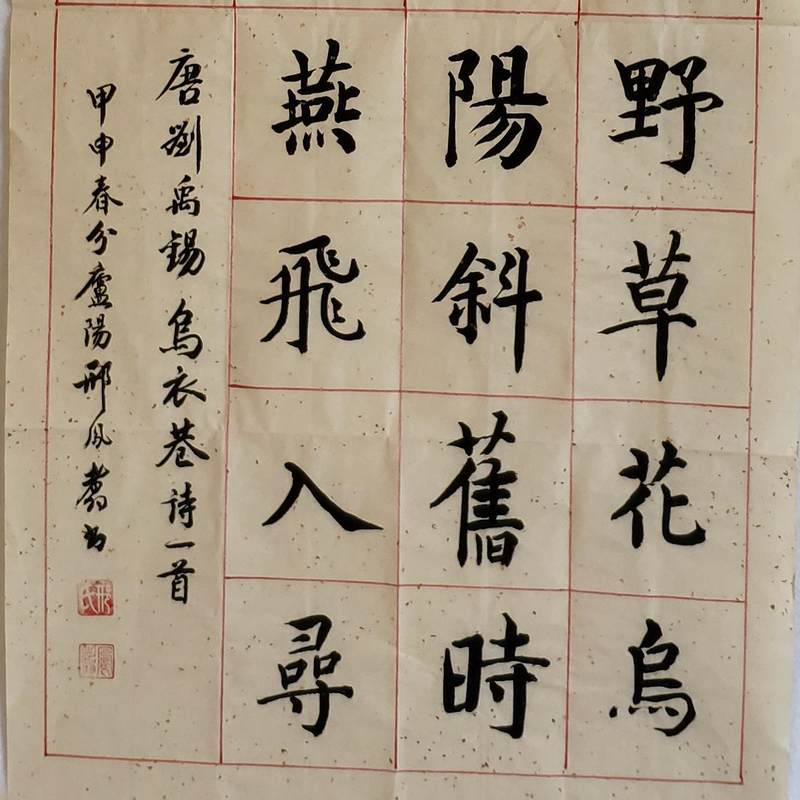 野草花烏
陽斜舊時
燕飛入尋
唐劉禹錫烏衣巷诗一首
甲申春分廬陽邢风鷟书